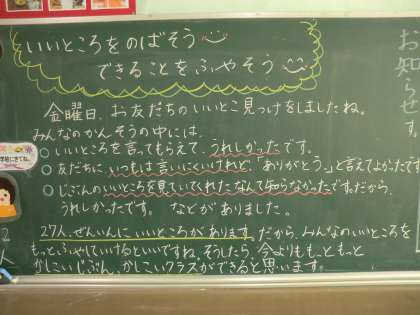 いいところをのばそう
できることをふやそう
金曜日、お友だちのいいとこ見っけをしましたね。
みんなのかんそうの中には、
○いいところを言ってもらえて、うれしかったです。
○友だちに、いつもは言いにくいけれど、ありがとう。と言えてよかったです
○じぶんのいいところを見ていてくれたなんて知らなかったです。だから、
うれしかったです。 などがありました。
27人、ぜんいんにいいところがあります。だから、みんなのいいところを
もっとふやしていけるといいですね。そうしたら、今よりももっともっと
かしこいじぶん、かしこいクラスができると思います。
お知らせ